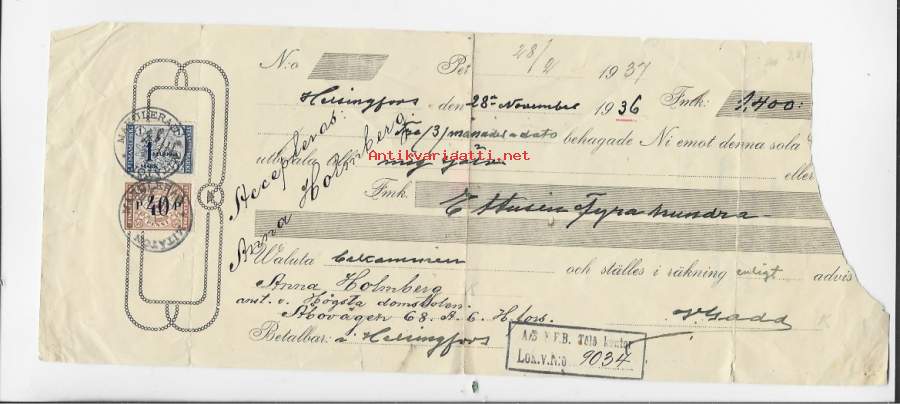 N:o Per 28/2 1937
Helsingfors den 28de November 1936 Fmk: 1,400:
Tre /3/ månader a dato behagade Ni emot denna sola
utbetala till mig själv eller
Fmk. Ettusen Fyra hundra
Waluta bekommen och ställes i räkning enligt advis
Anna Holmberg
anst. v. Högsta domstolen
Åbovägen 68. A. 6. H:fors.
V. Gadd
Betalbar: å Helsingfors
Accepteras:
Anna Holmberg
1
40
A/B Tölö kontor
Lok.V.N:o 9034
Antikvariaatti.net